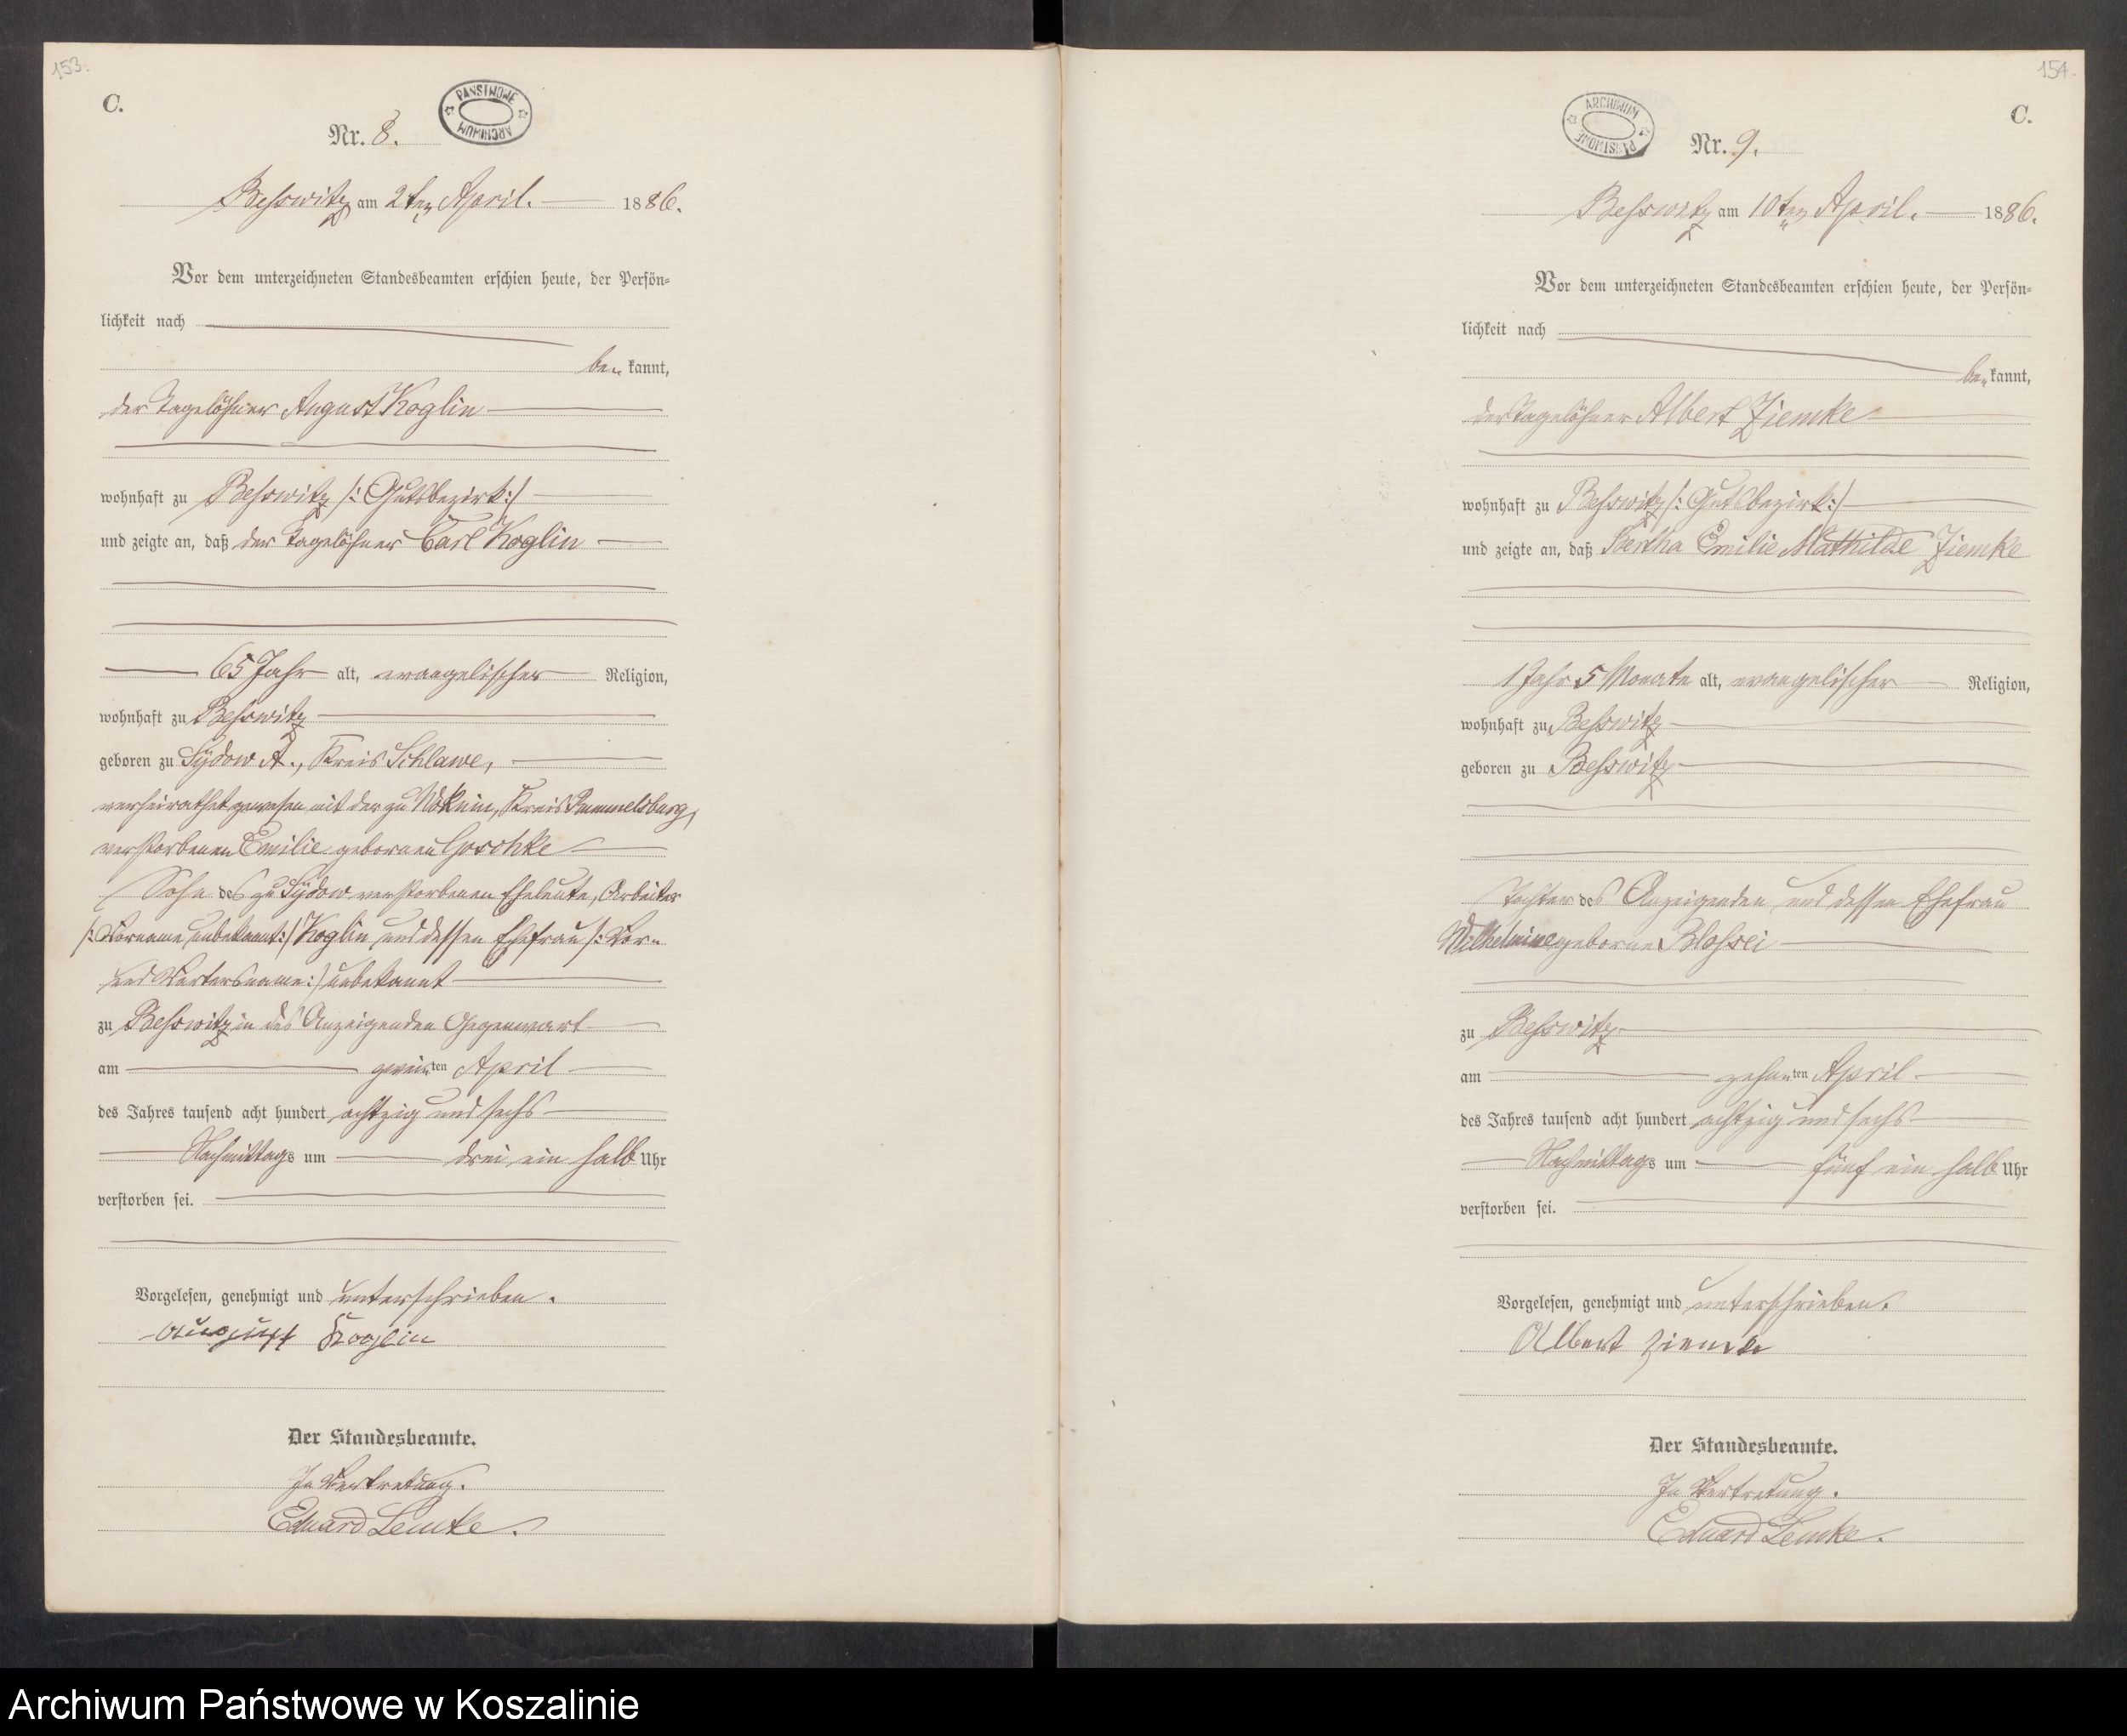 153.
C.
PAŃSTWOWE ARCHIWUM
Nr. 8.
Beßwitz am 2ten April. 1886.
Vor dem unterzeichneten Standesbeamten erschien heute, der Persön-
lichkeit nach
be kannt,
der Tagelöhner August Koglin
wohnhaft zu Beßwitz /: Gutsbezirk :/
und zeigte an, daß der Tagelöhner Carl Koglin
65 Jahr alt, evangelischer Religion,
wohnhaft zu Beßwitz
geboren zu Sydow A., Kreis Schlawe,
verheirathet gewesen mit der zu Kreis Rummelsburg,
verstorbenen Emilie geborenen Goschke
Sohn des zu Sydow verstorbenen Eheleute, Arbeiter
/: Vorname unbekannt :/ Koglin und dessen Ehefrau /: Vor-
und Vatersname :/ unbekannt
zu Beßwitz in des Anzeigenden Gegenwart
am zweiten April
des Jahres tausend acht hundert achtzig und sechs
Nachmittags um drei ein halb Uhr
verstorben sei.
Vorgelesen, genehmigt und unterschrieben.
August Koglin
Der Standesbeamte.
In Vertretung.
Eduard Lemke.
154.
C.
ARCHIWUM PAŃSTWOWE
Nr. 9.
Beßwitz am 10ten April. 1886.
Vor dem unterzeichneten Standesbeamten erschien heute, der Persön-
lichkeit nach
be kannt,
der Tagelöhner Albert Ziemke
wohnhaft zu Beßwitz /: Gutsbezirk :/
und zeigte an, daß Bertha Emilie Mathilde Ziemke
1 Jahr 5 Monate alt, evangelischer Religion,
wohnhaft zu Beßwitz
geboren zu Beßwitz
Tochter des Anzeigenden und dessen Ehefrau
Wilhelmine geborne
zu Beßwitz
am zehnten April
des Jahres tausend acht hundert achtzig und sechs
Nachmittags um fünf ein halb Uhr
verstorben sei.
Vorgelesen, genehmigt und unterschrieben.
Albert Ziemke
Der Standesbeamte.
In Vertretung.
Eduard Lemke.
Archiwum Państwowe w Koszalinie